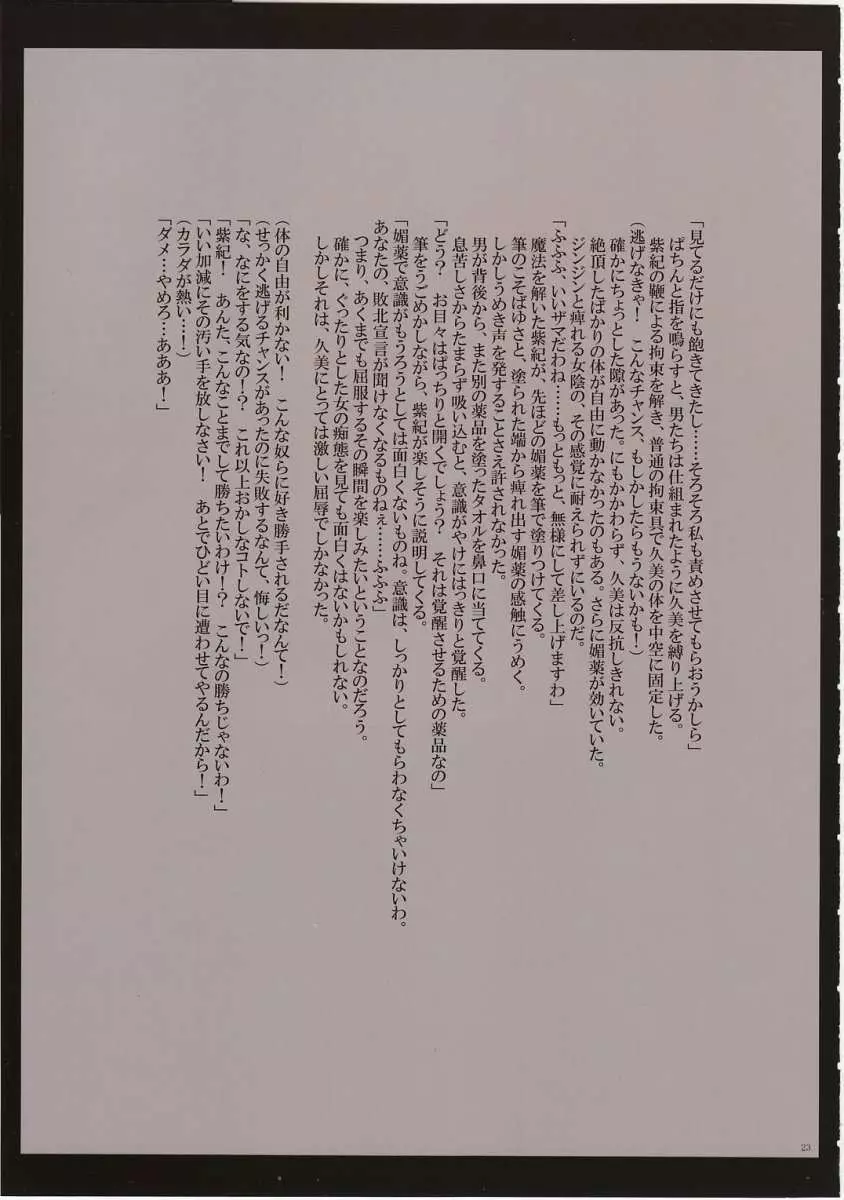 「見てるだけにも飽きてきたし……そろそろ私も責めさせてもらおうかしら」
ぱちんと指を鳴らすと、男たちは仕組まれたように久美を縛り上げる。
紫紀の鞭による拘束を解き、普通の拘束具で久美の体を中空に固定した。
（逃げなきゃ！　こんなチャンス、もしかしたらもうないかも！）
確かにちょっとした隙があった。にもかかわらず、久美は反抗しきれない。
絶頂したばかりの体が自由に動かなかったのもある。さらに媚薬が効いていた。
ジンジンと痺れる女陰の、その感覚に耐えられずにいるのだ。
「ふふふ、いいザマだわね……もっともっと、無様にして差し上げますわ」
魔法を解いた紫紀が、先ほどの媚薬を筆で塗りつけてくる。
筆のこそばゆさと、塗られた端から痺れ出す媚薬の感触にうめく。
しかしうめき声を発することさえ許されなかった。
男が背後から、また別の薬品を塗ったタオルを鼻口に当ててくる。
息苦しさからたまらず吸い込むと、意識がやけにはっきりと覚醒した。
「どう？　お目々はぱっちりと開くでしょう？　それは覚醒させるための薬品なの」
筆をうごめかしながら、紫紀が楽しそうに説明してくる。
「媚薬で意識がもうろうとしては面白くないものね。意識は、しっかりとしてもらわなくちゃいけないわ。
あなたの、敗北宣言が聞けなくなるものねぇ……ふふふ」
つまり、あくまでも屈服するその瞬間を楽しみたいということなのだろう。
確かに、ぐったりとした女の痴態を見ても面白くはないかもしれない。
しかしそれは、久美にとっては激しい屈辱でしかなかった。
（体の自由が利かない！　こんな奴らに好き勝手されるだなんて！）
（せっかく逃げるチャンスがあったのに失敗するなんて、悔しいっ！）
「な、なにをする気なの！？　これ以上おかしなコトしないで！」
「紫紀！　あんた、こんなことまでして勝ちたいわけ！？　こんなの勝ちじゃないわ！」
「いい加減にその汚い手を放しなさい！　あとでひどい目に遭わせてやるんだから！」
（カラダが熱い…！）
「ダメ…やめろ…あああ！」
23